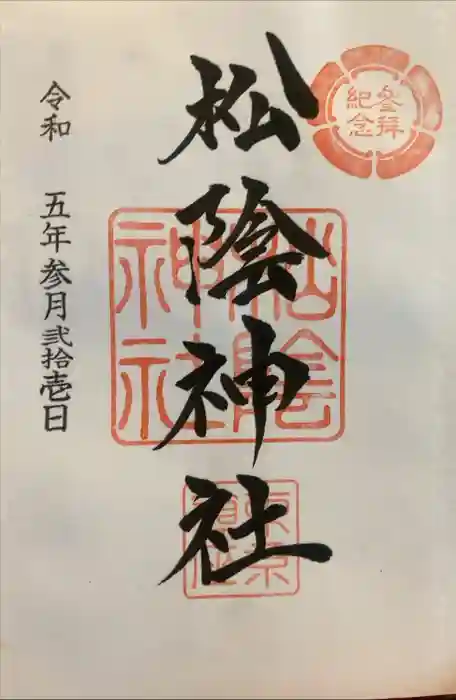 参拝
紀念
松陰神社
松陰
神社
令和 五年参月弐拾壱日